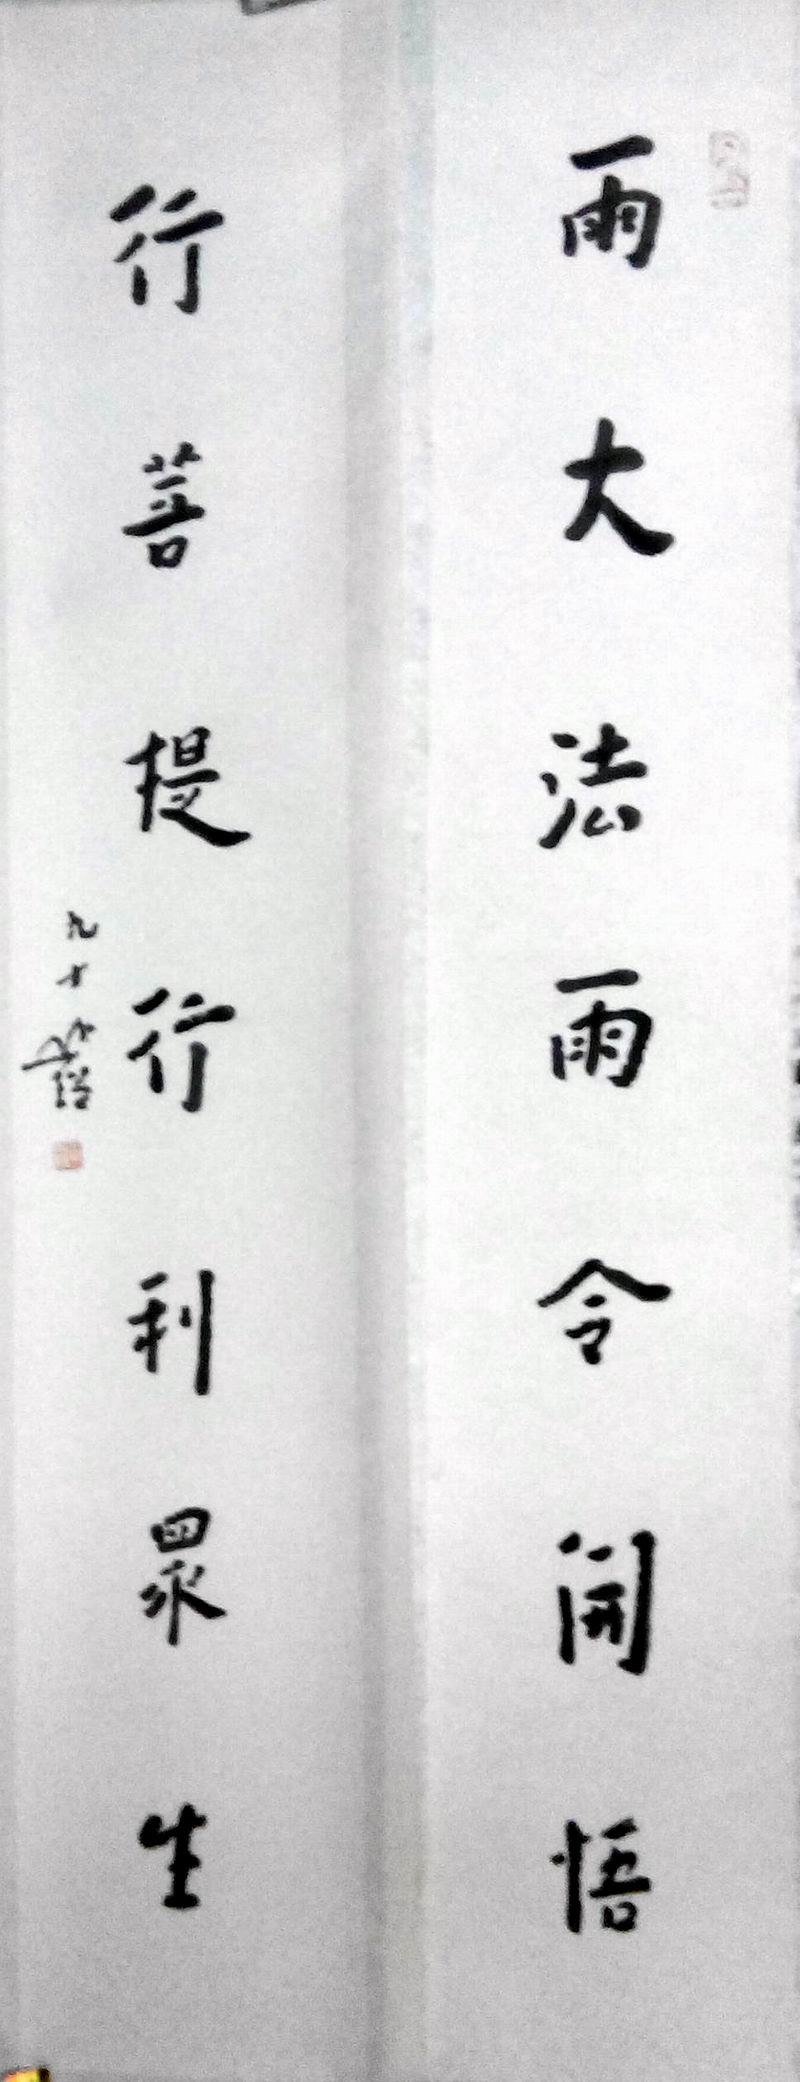 雨大法雨令開悟
行菩提行利眾生
九十